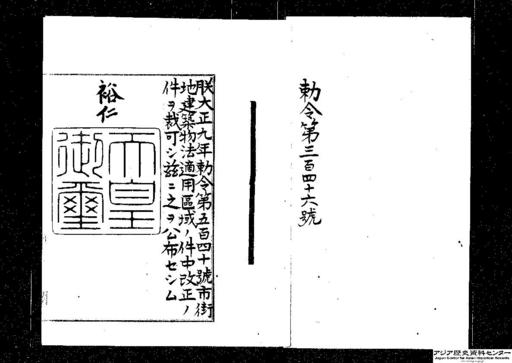 勅令第三百四十六號
朕大正九年勅令第五百四十號市街
地建築物法適用區域ノ件中改正ノ
件ヲ裁可シ茲ニ之ヲ公布セシム
裕仁
天皇
御璽
アジア歴史資料センター
Japan Center for Asian Historical Records